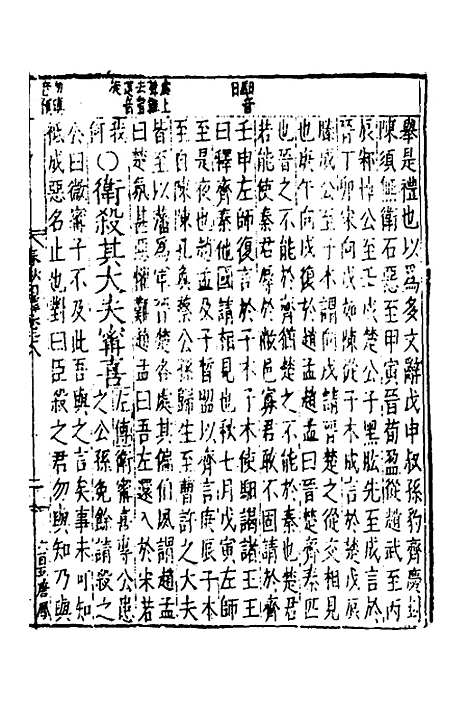 舉是禮也以為多文辭戊申叔孫豹齊慶封
陳須無衛石惡至甲寅晉荀盈從趙武至丙
辰邾悼公至壬戌楚公子黑肱先至成言於
晉丁卯宋向戌如陳從子木成言於楚戊辰
滕成公至子木謂向戌請晉楚之從交相見
也庚午向戌復於趙孟趙孟曰晉楚齊秦匹
也晉之不能於齊猶楚之不能於秦也楚君
若能使秦君辱於敝邑寡君敢不固請於齊
壬申左師復言於子木子木使馹謁諸王王
曰釋齊秦他國請相見也秋七月戊寅左師
至是夜也趙孟及子晳盟以齊言庚辰子木
至自陳陳孔奐蔡公孫歸生至曹許之大夫
皆至以藩為軍晉楚各處其偏伯夙謂趙孟
曰楚氛甚惡懼難趙孟曰吾左還入於宋若
我何
○衛殺其大夫甯喜
左傳衛甯喜專公患
之公孫免餘請殺之
公曰微甯子不及此吾與之言矣事未可知
祗成惡名止也對曰臣殺之君勿與知乃與
馹音
日